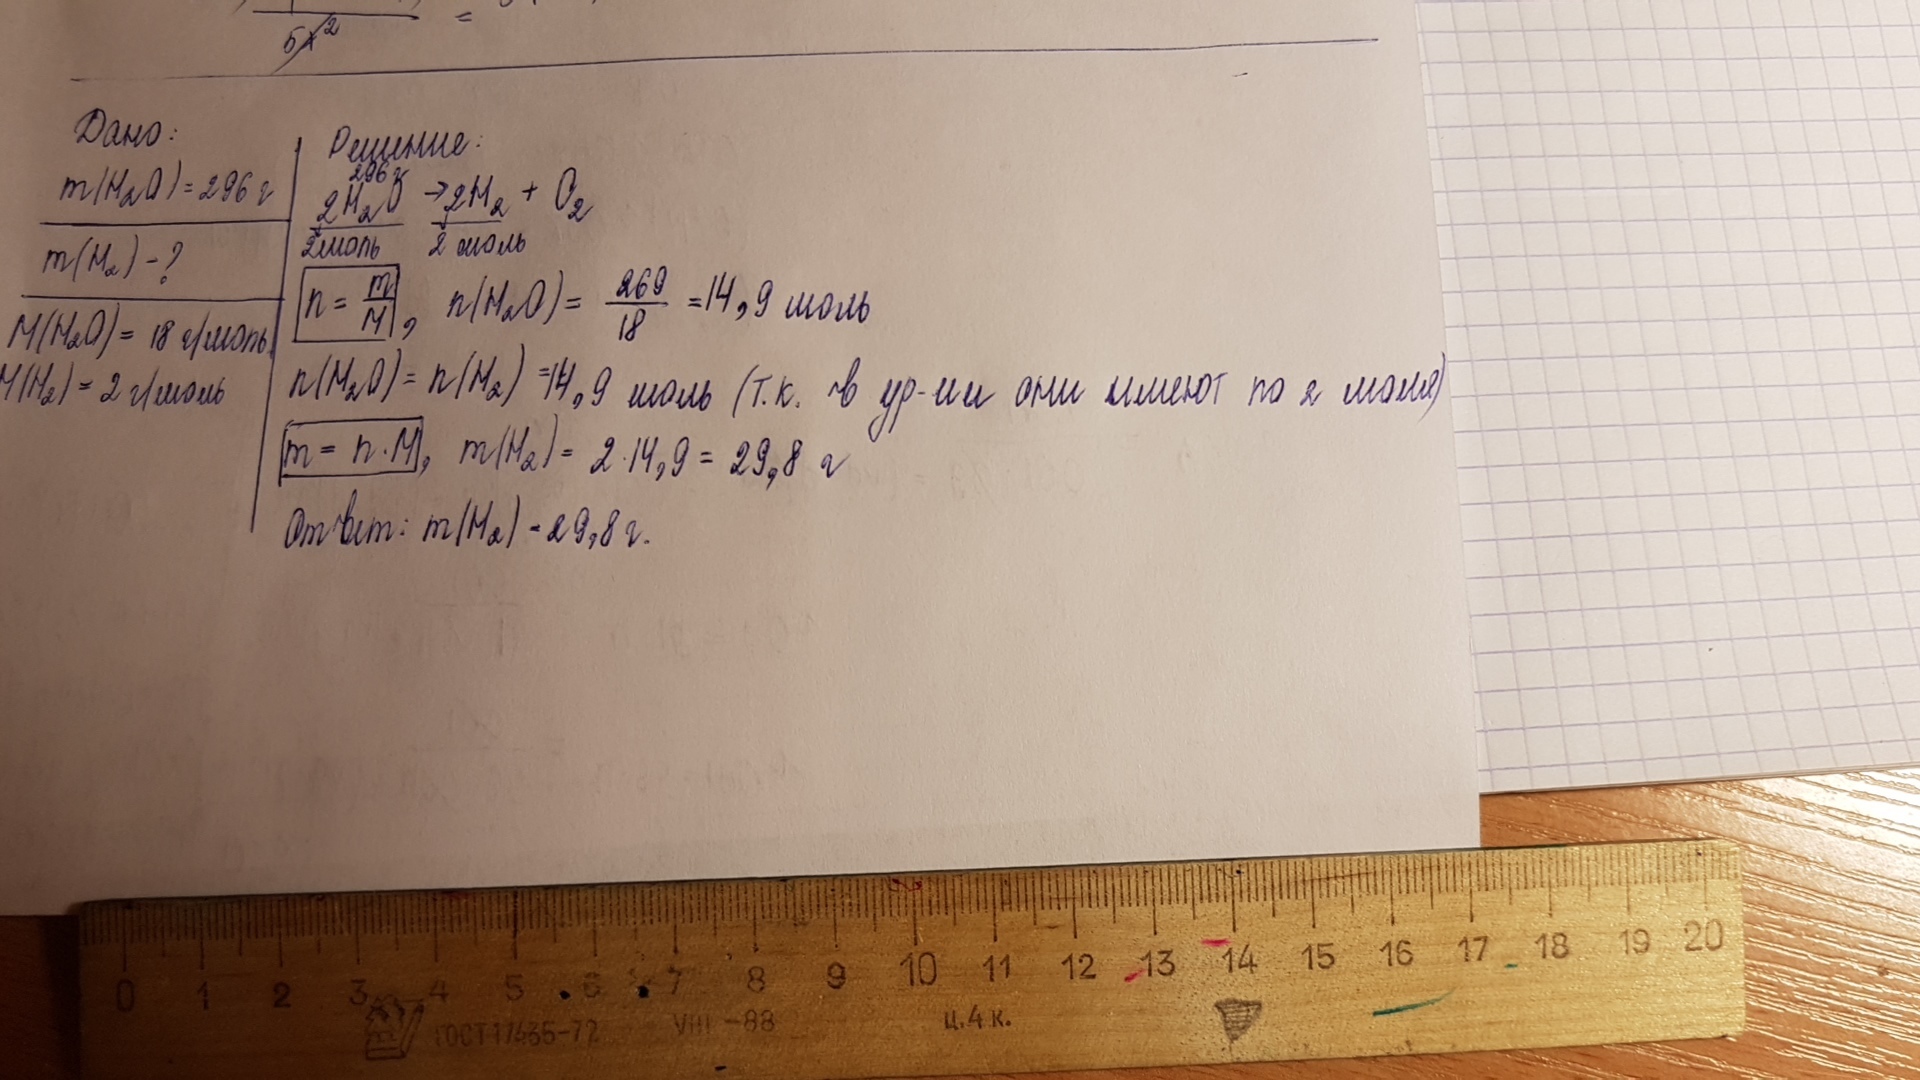 5x² =
Дано:
m(H₂O) = 296 г
m(H₂) - ?
M(H₂O) = 18 г/моль
M(H₂) = 2 г/моль
Решение:
296 г
2H₂O → 2H₂ + O₂
2 моль 2 моль
n = m/M, n(H₂O) = 269/18 = 14,9 моль
n(H₂O) = n(H₂) = 14,9 моль (т.к. в ур-ии они имеют по 2 моля)
m = n·M, m(H₂) = 2·14,9 = 29,8 г
Ответ: m(H₂) - 29,8 г.
0 1 2 3 4 5 6 7 8 9 10 11 12 13 14 15 16 17 18 19 20
ГОСТ 17435-72 VIII-88 ц.4 к.